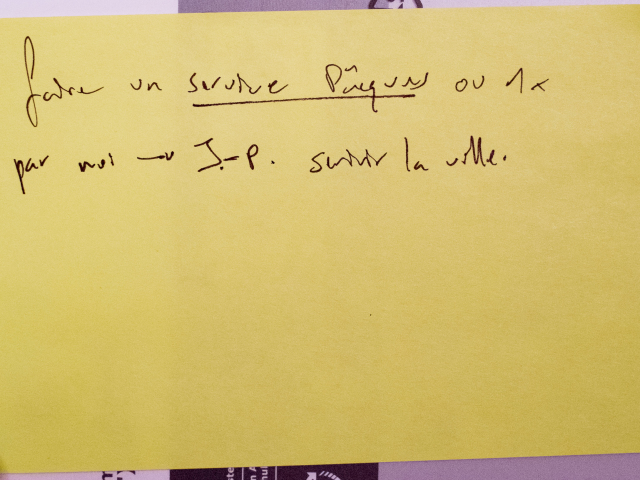 faire un service Pâques ou 1x
par moi → J.-P. suivir la ville.